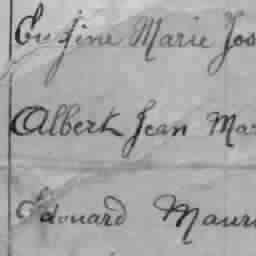 Eugine Marie Jos
Albert Jean Mar
Edouard Mauri